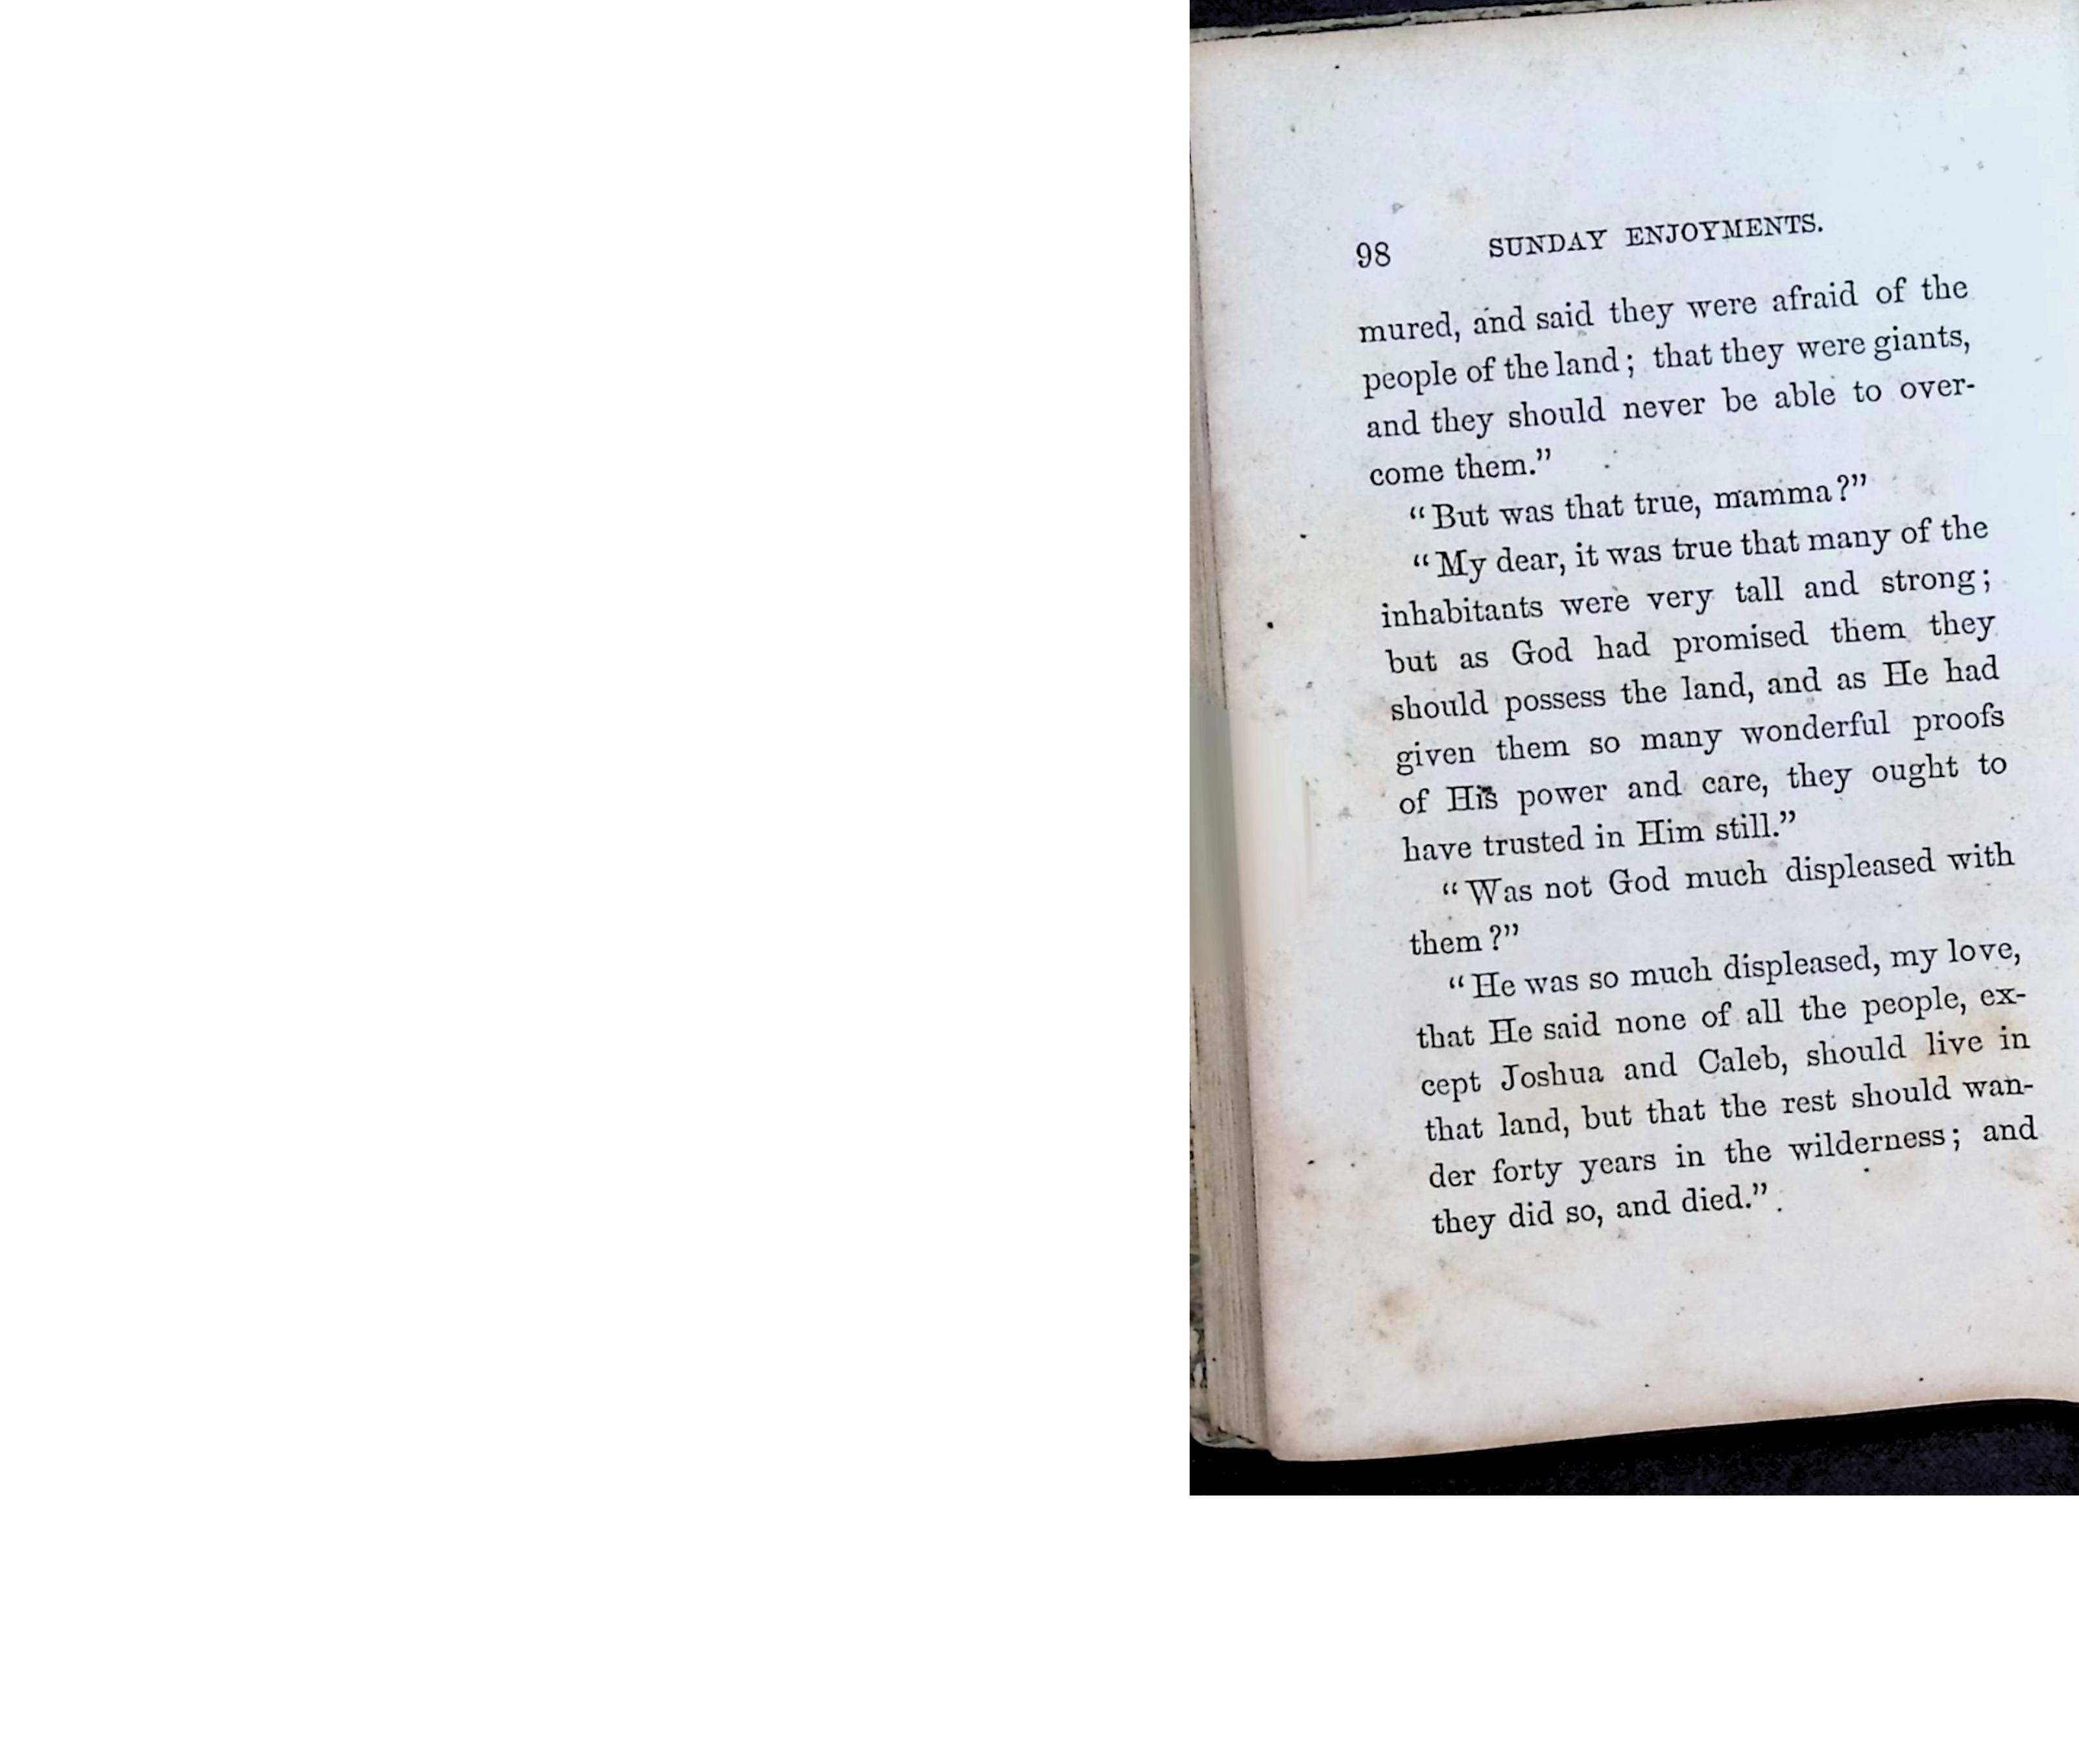 98 SUNDAY ENJOYMENTS.
mured, and said they were afraid of the
people of the land; that they were giants,
and they should never be able to over-
come them.”
“But was that true, mamma?”
“My dear, it was true that many of the
inhabitants were very tall and strong;
but as God had promised them they
should possess the land, and as He had
given them so many wonderful proofs
of His power and care, they ought to
have trusted in Him still.”
“Was not God much displeased with
them?”
“He was so much displeased, my love,
that He said none of all the people, ex-
cept Joshua and Caleb, should live in
that land, but that the rest should wan-
der forty years in the wilderness; and
they did so, and died.”